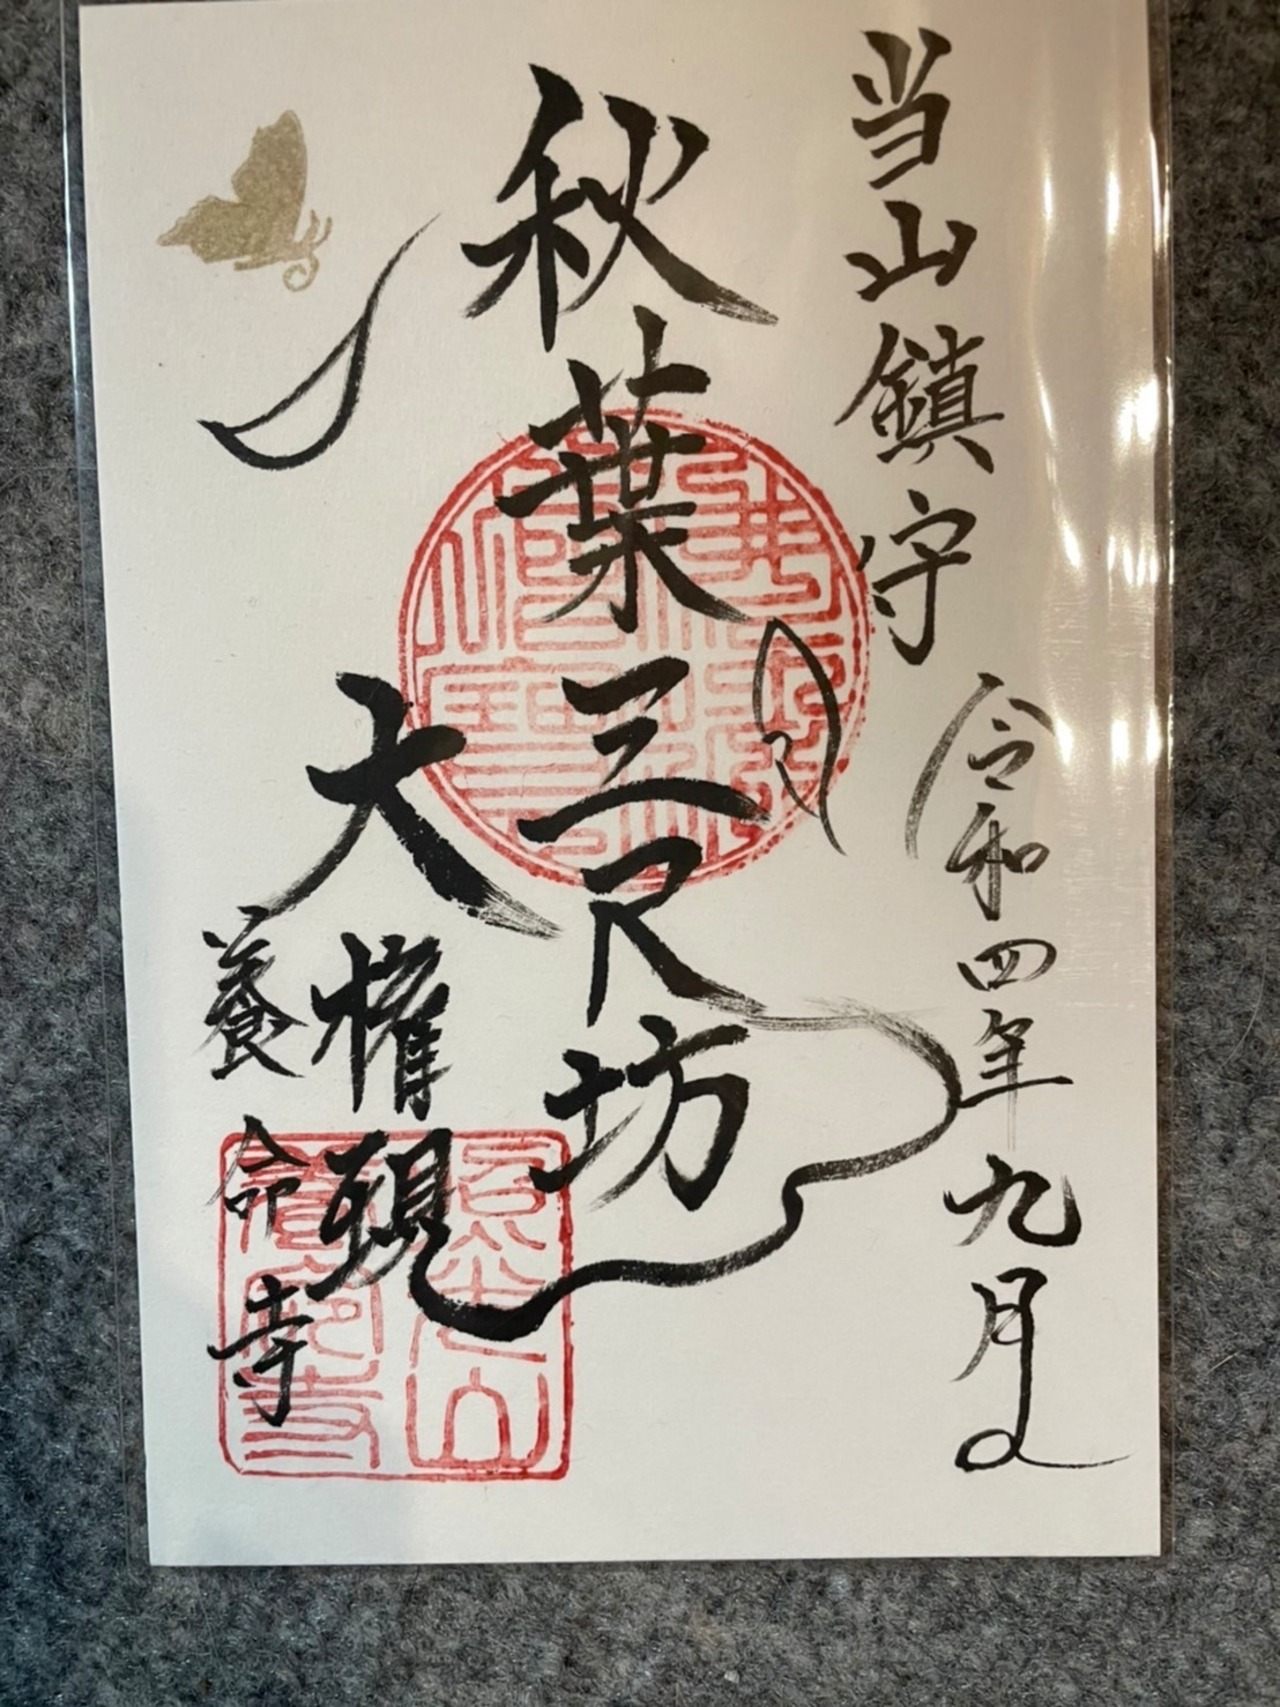 当山鎮守
令和四年九月
秋葉三尺坊
大権現
養命寺